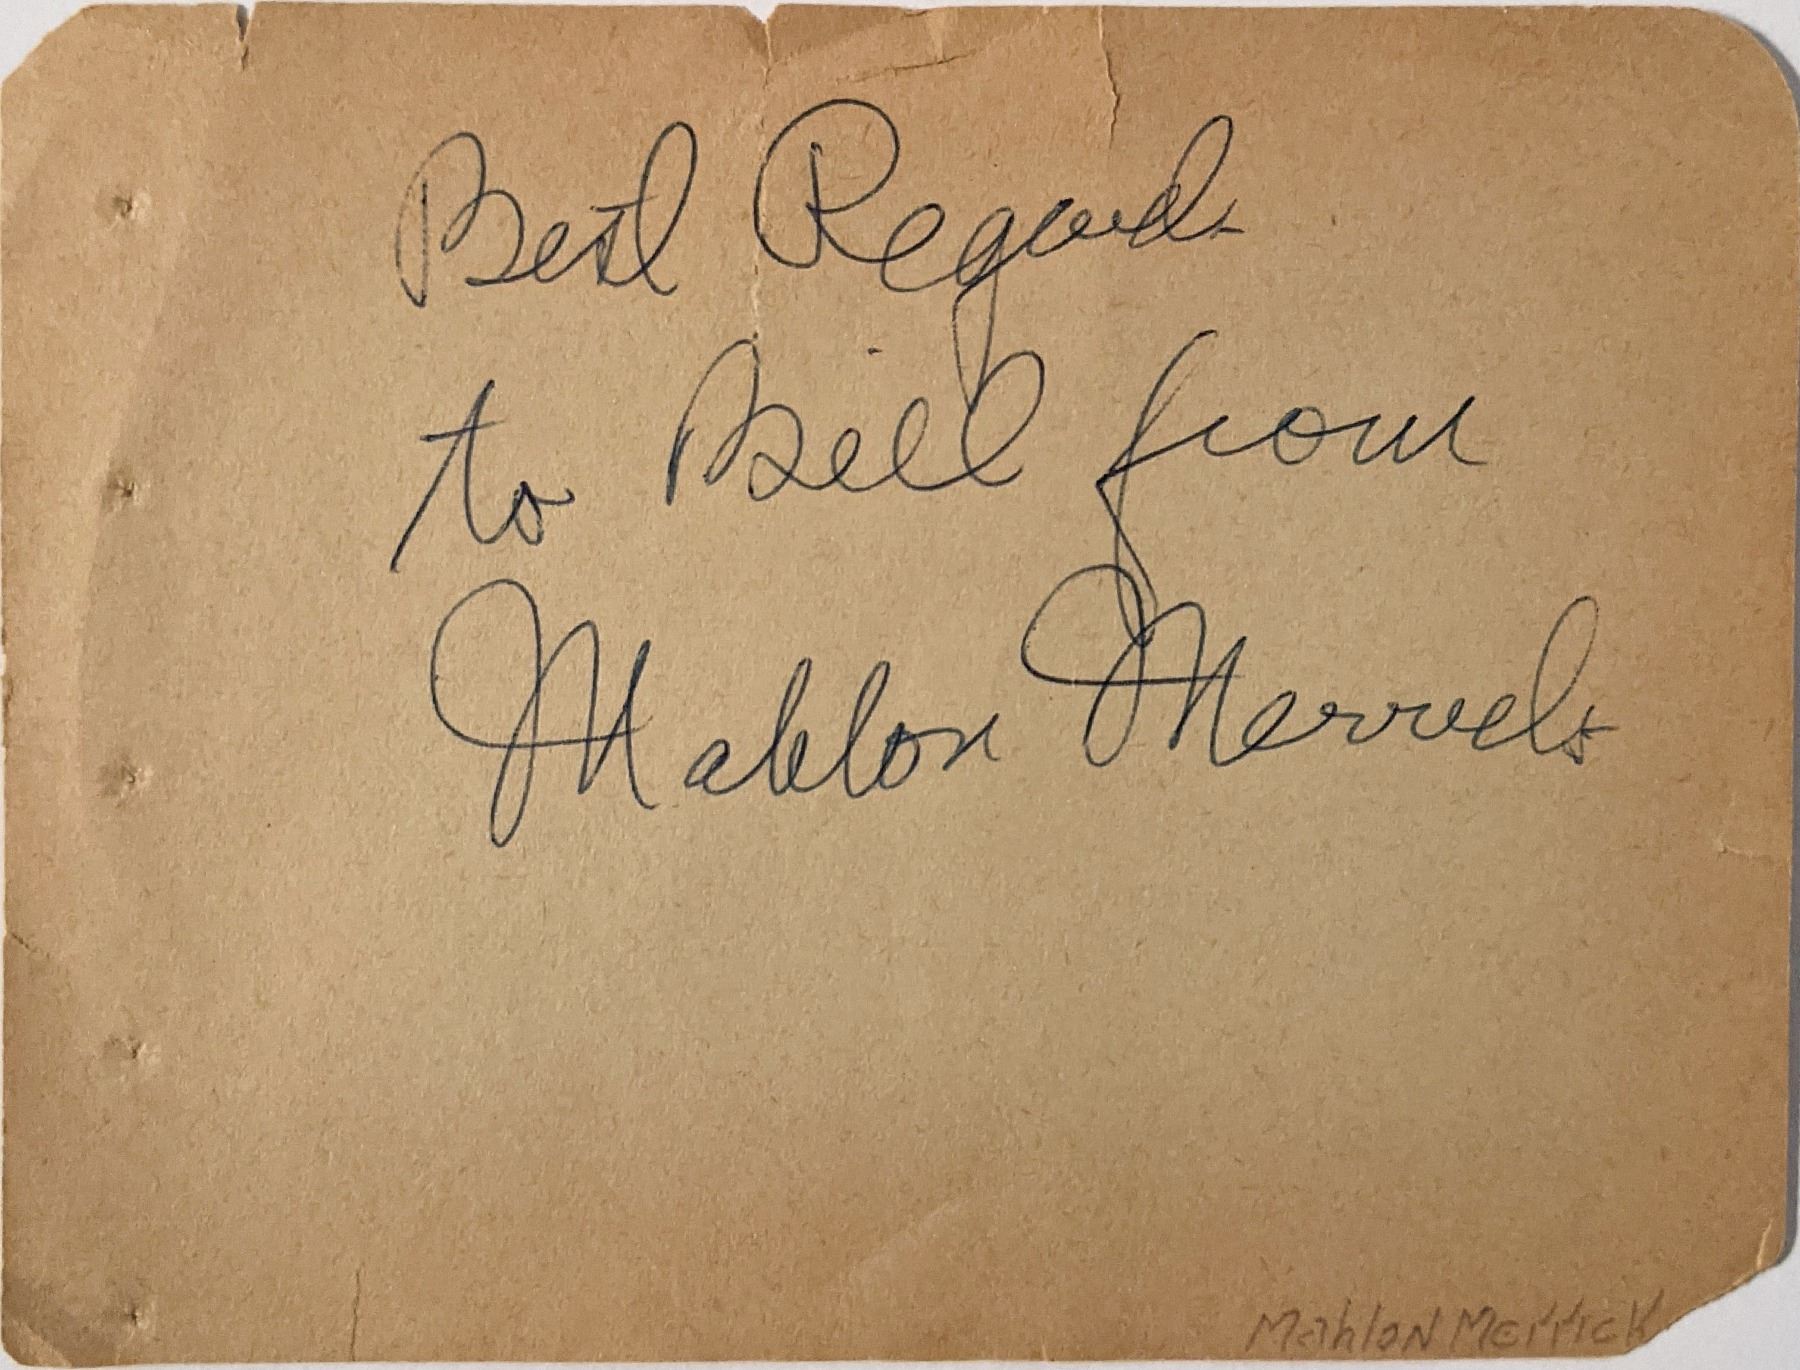 Best Regards
to Bill from
Mahlon Merrick
Mahlon Merrick